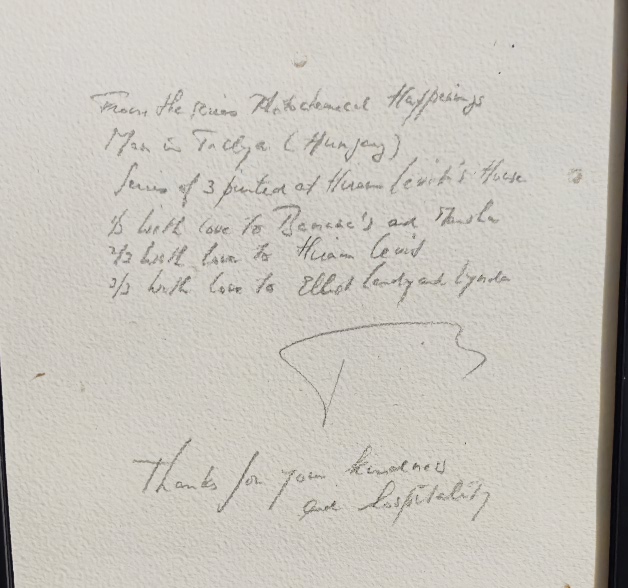 From the series Photochemical Happenings
Man in Tallya (Hungary)
Series of 3 printed at Hiram Levit's House
1/3 with love to and
2/3 with love to Hiram Levit
3/3 with love to Elliot Landy and Lynda
Thanks for your kindness
and hospitality